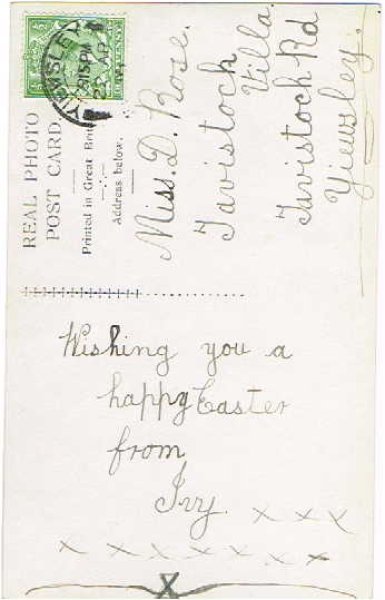 REAL PHOTO
POST CARD.
Printed in Great
Address below.
YIEWSLEY
Miss. D. Rose.
Tavistock
Villa.
Tavistock Rd
Yiewsley.
Wishing you a
happy Easter
from
Ivy.
x x x
x x x x x x x
X